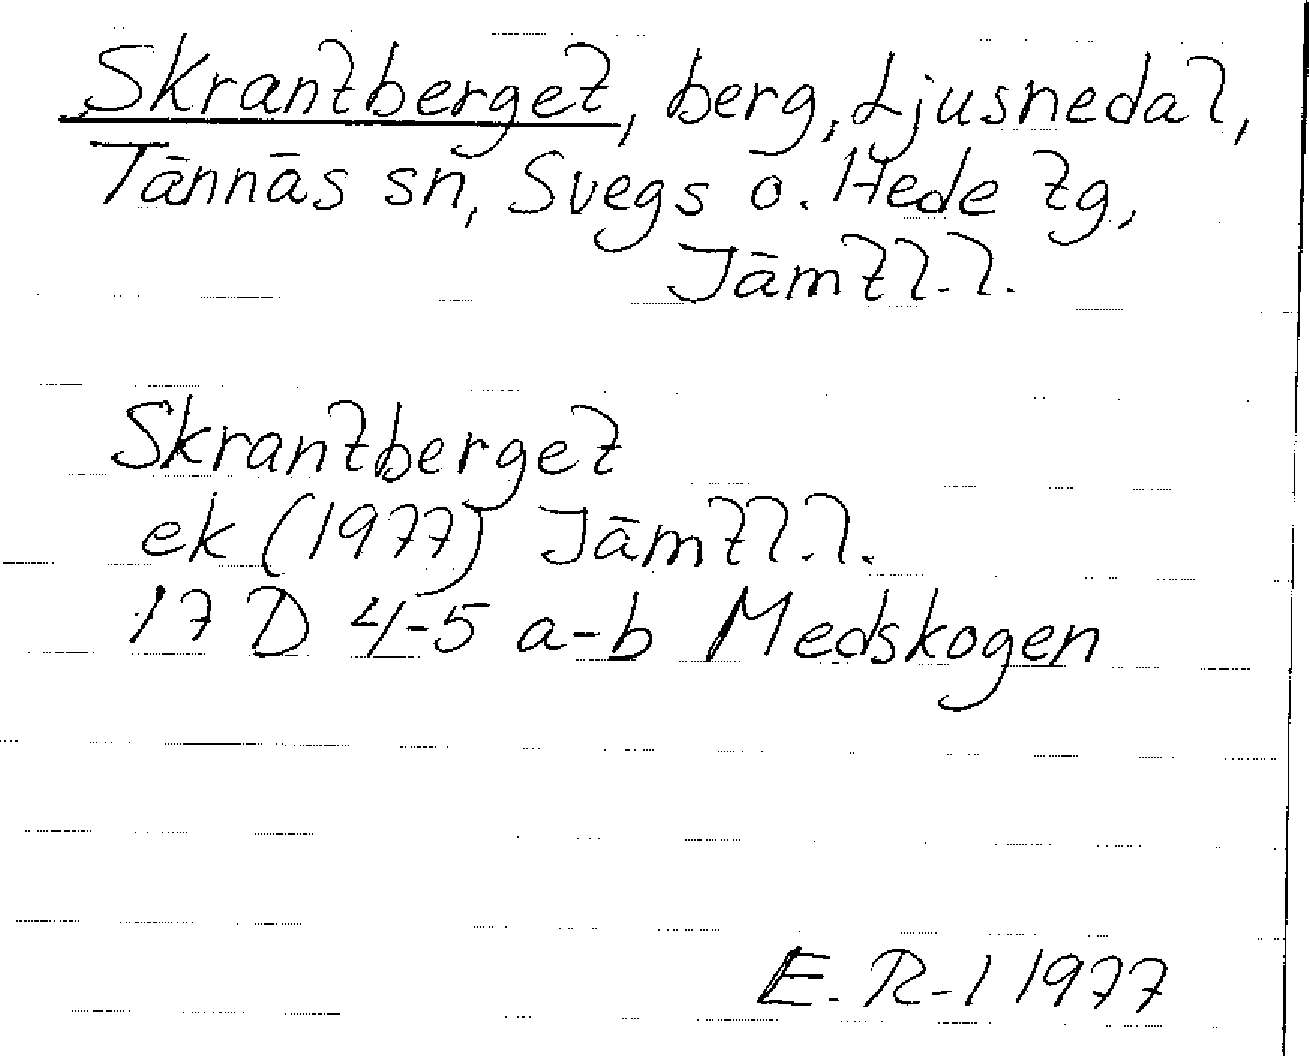 Skrantberget, berg, Ljusnedal,
Tännäs sn, Svegs o. Hede tg,
Jämtl. l.
Skrantberget
ek (1977) Jämtl. l.
17 D 4-5 a-b Medskogen
E. R-l 1977